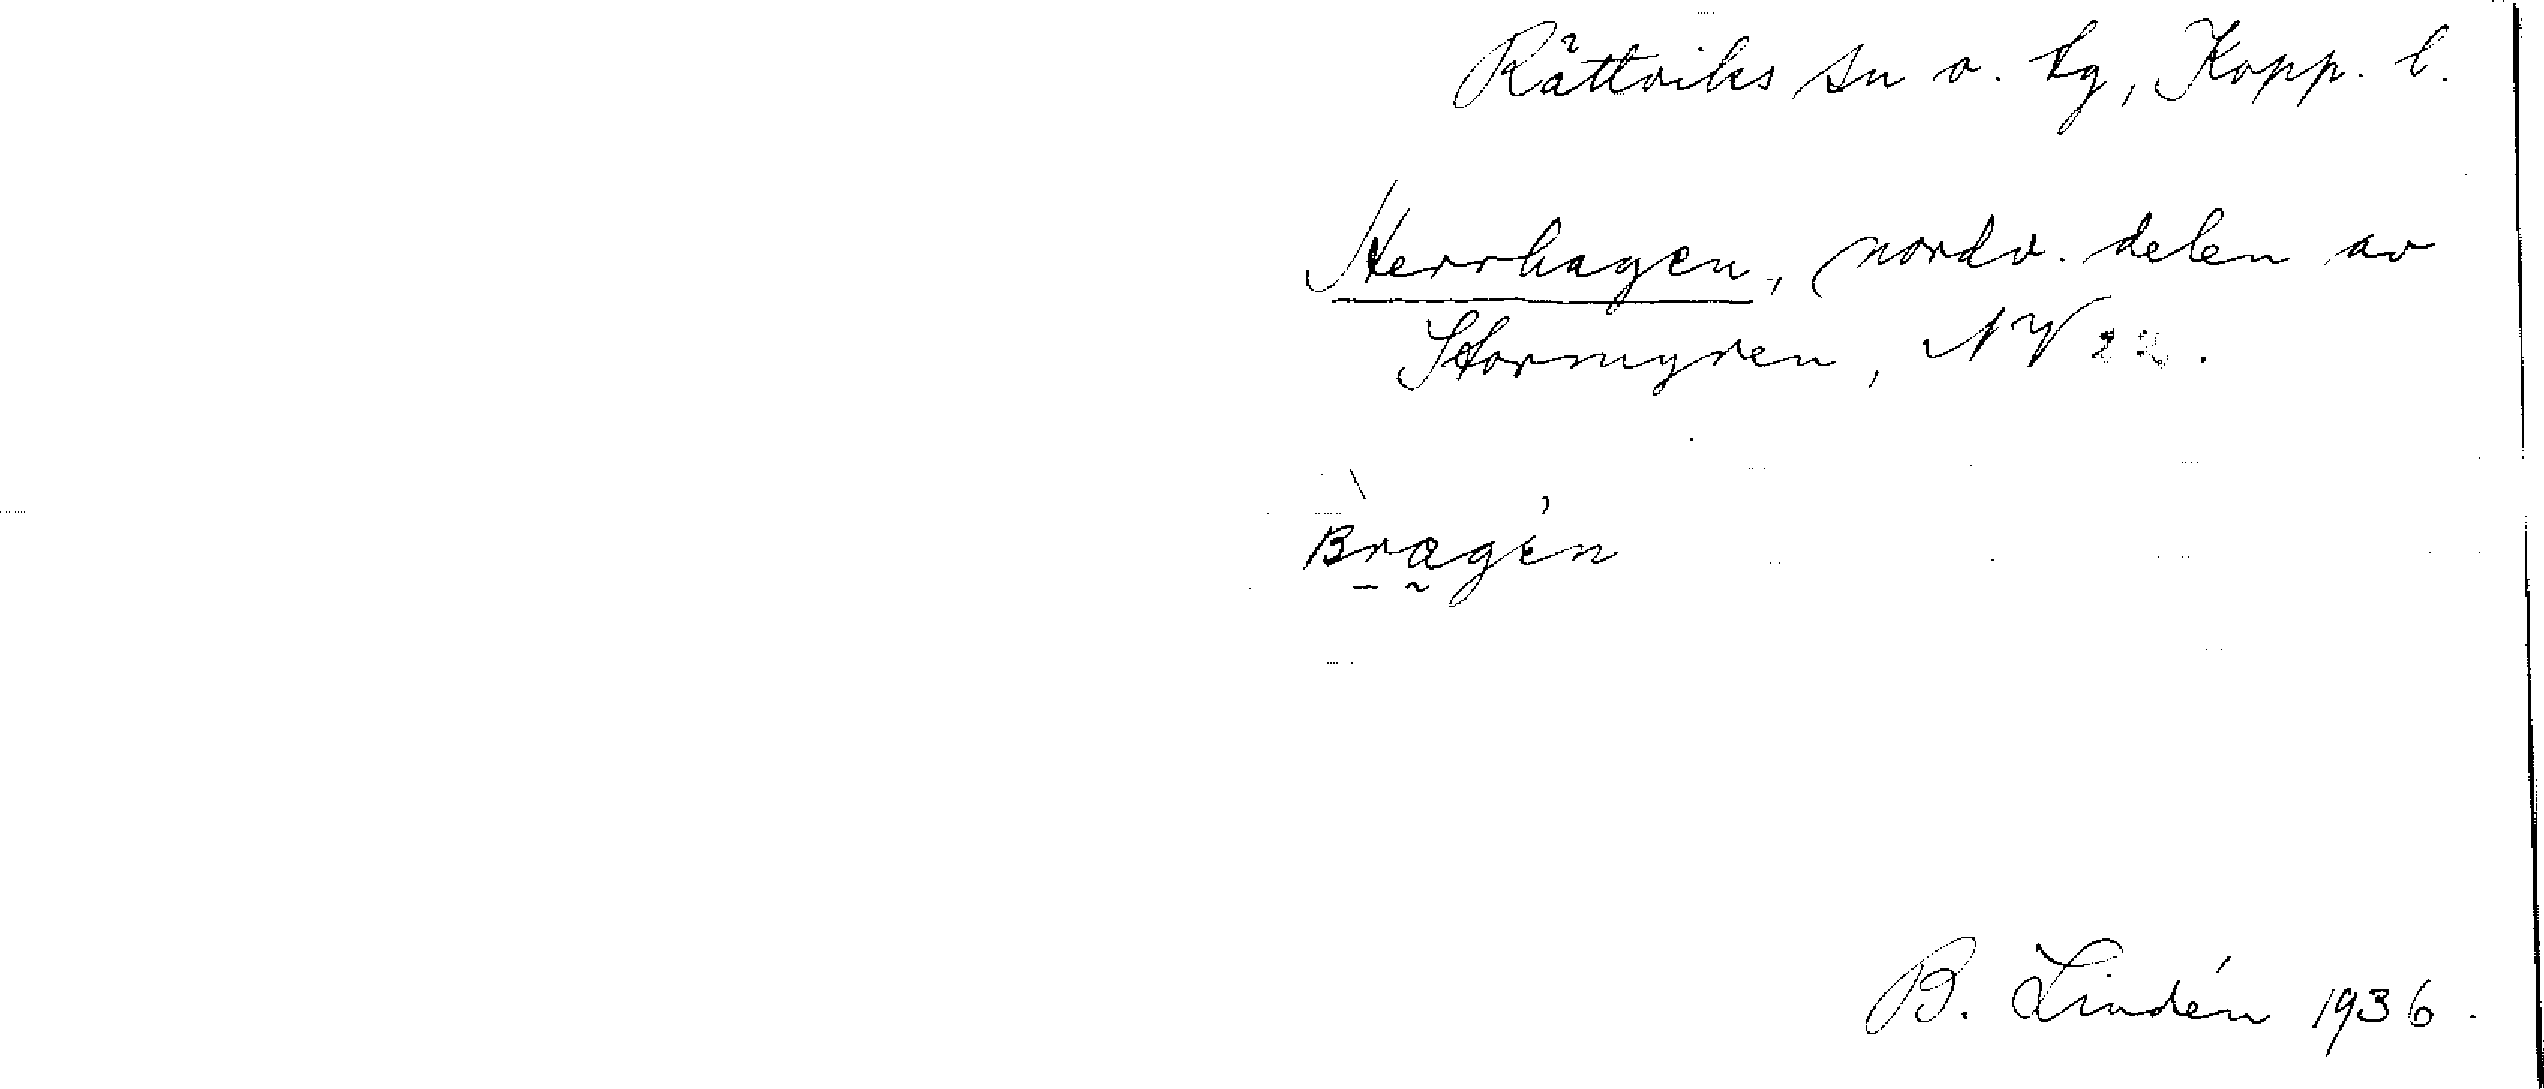 Rättviks sn o. tg, Kopp. l.
Herrhagen, nordv. delen av
Stormyren, NV 22.
B. Lindén 1936.